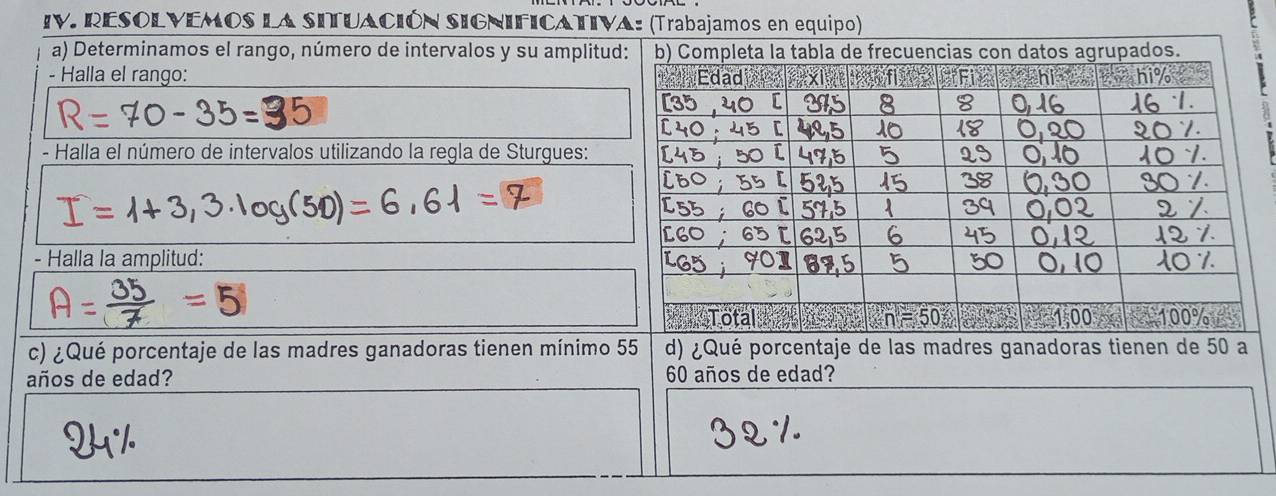 IV. RESOLVEMOS LA SITUACIÓN SIGNIFICATIVA: (Trabajamos en equipo)
a) Determinamos el rango, número de intervalos y su amplitud:
- Halla el rango:
R = 70 - 35 = 35
- Halla el número de intervalos utilizando la regla de Sturgues:
I = 1 + 3,3 . log(50) = 6,61 = 7
- Halla la amplitud:
A = 35/7 = 5
b) Completa la tabla de frecuencias con datos agrupados.
Edad xi fi Fi hi hi%
[35 , 40 [ 37,5 8 8 0,16 16 %
[40 ; 45 [ 42,5 10 18 0,20 20 %
[45 ; 50 [ 47,5 5 23 0,10 10 %
[50 ; 55 [ 52,5 15 38 0,30 30 %
[55 ; 60 [ 57,5 1 39 0,02 2 %
[60 ; 65 [ 62,5 6 45 0,12 12 %
[65 ; 70] 67,5 5 50 0,10 10 %
Total n = 50 1,00 100%
c) ¿Qué porcentaje de las madres ganadoras tienen mínimo 55
años de edad?
24%
d) ¿Qué porcentaje de las madres ganadoras tienen de 50 a
60 años de edad?
32 %